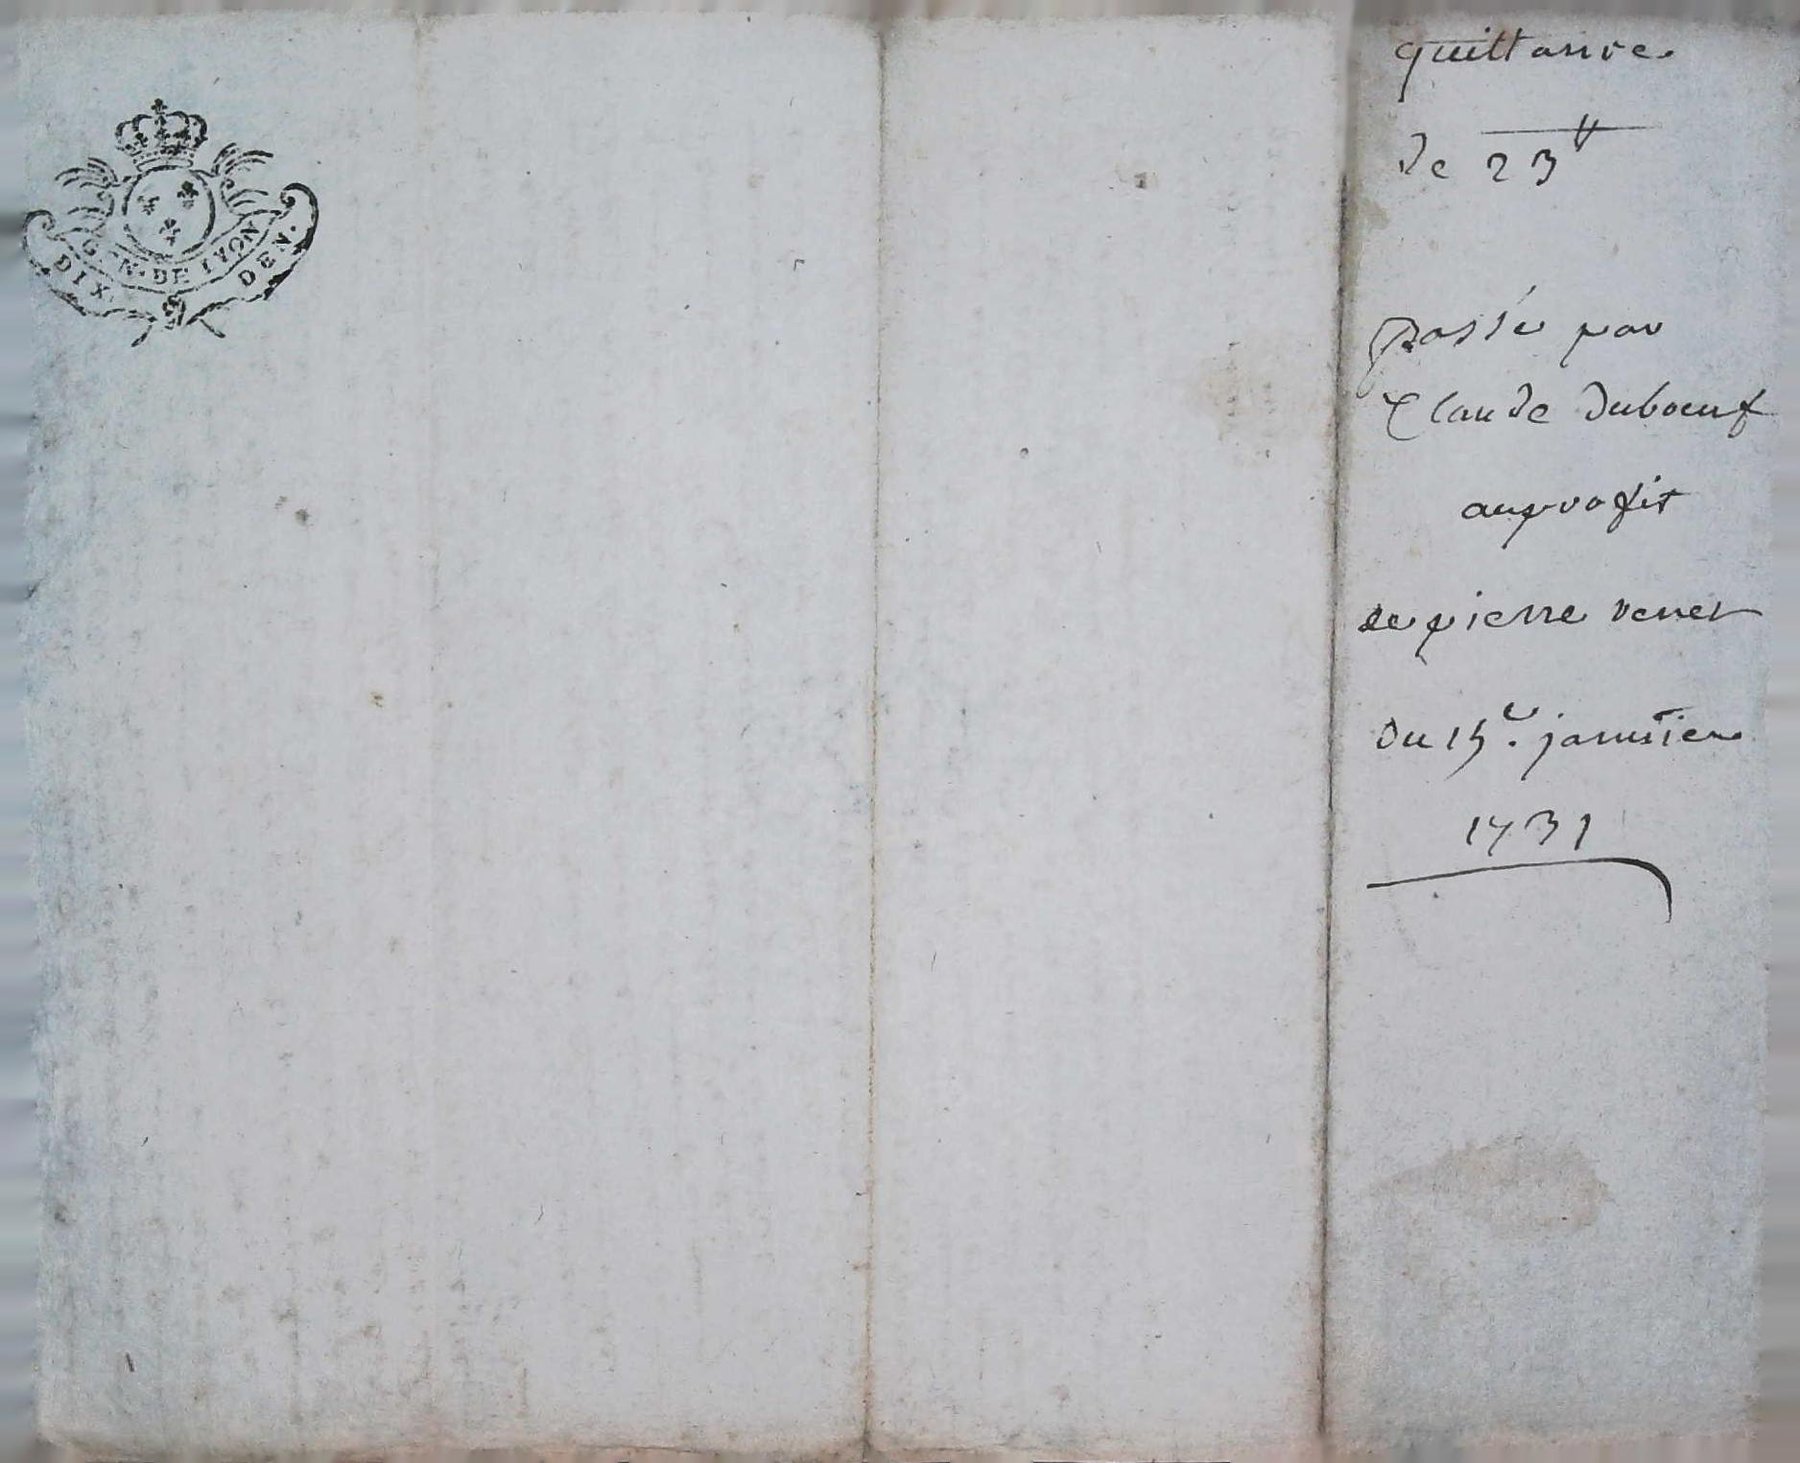 GEN. DE LYON
DIX DEN.
quittance
de 23 ₶
passé par
Claude duboeuf
au profit
de pierre venet
Du 15e. januier
1731